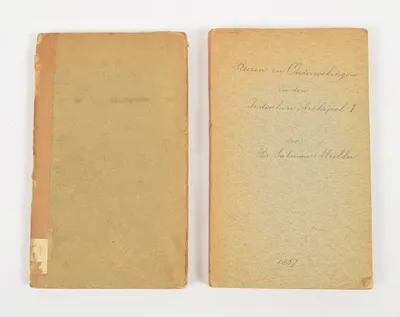 Reizen en Onderzoekingen
in den
Indischen Archipel I
van
Dr. Salomon Müller
1857